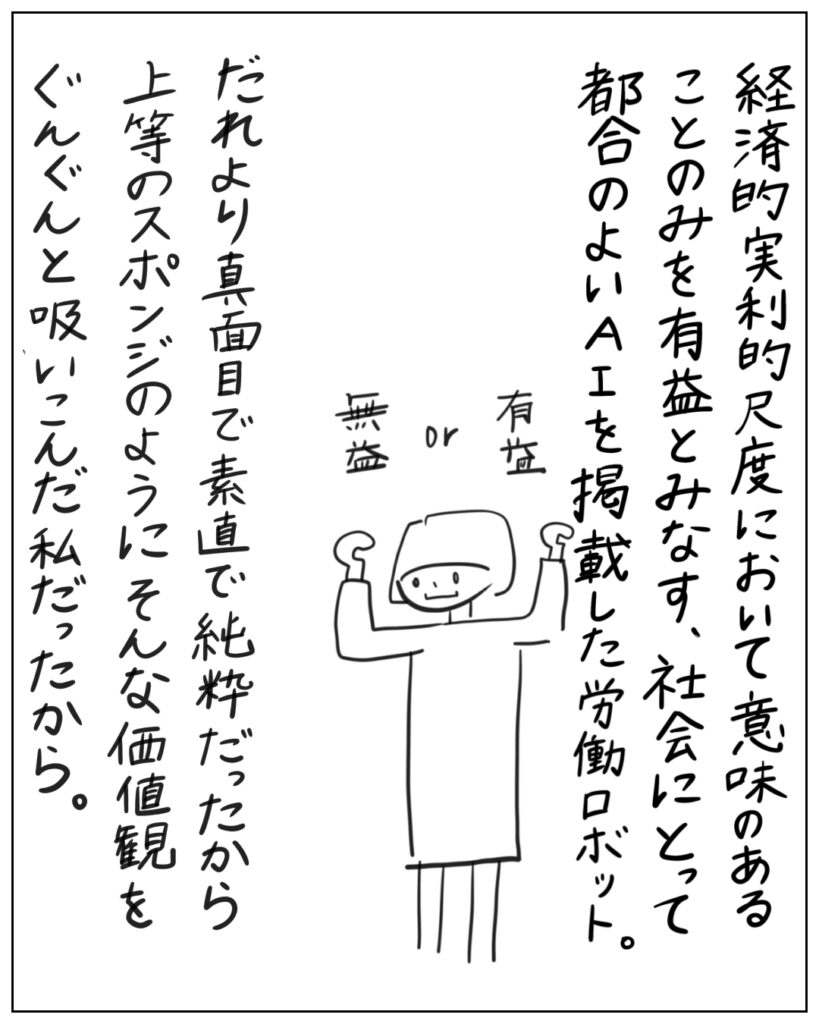 経済的実利的尺度において意味のある
ことのみを有益とみなす、社会にとって
都合のよいAIを掲載した労働ロボット。
有益
or
無益
だれより真面目で素直で純粋だったから
上等のスポンジのようにそんな価値観を
ぐんぐんと吸いこんだ私だったから。